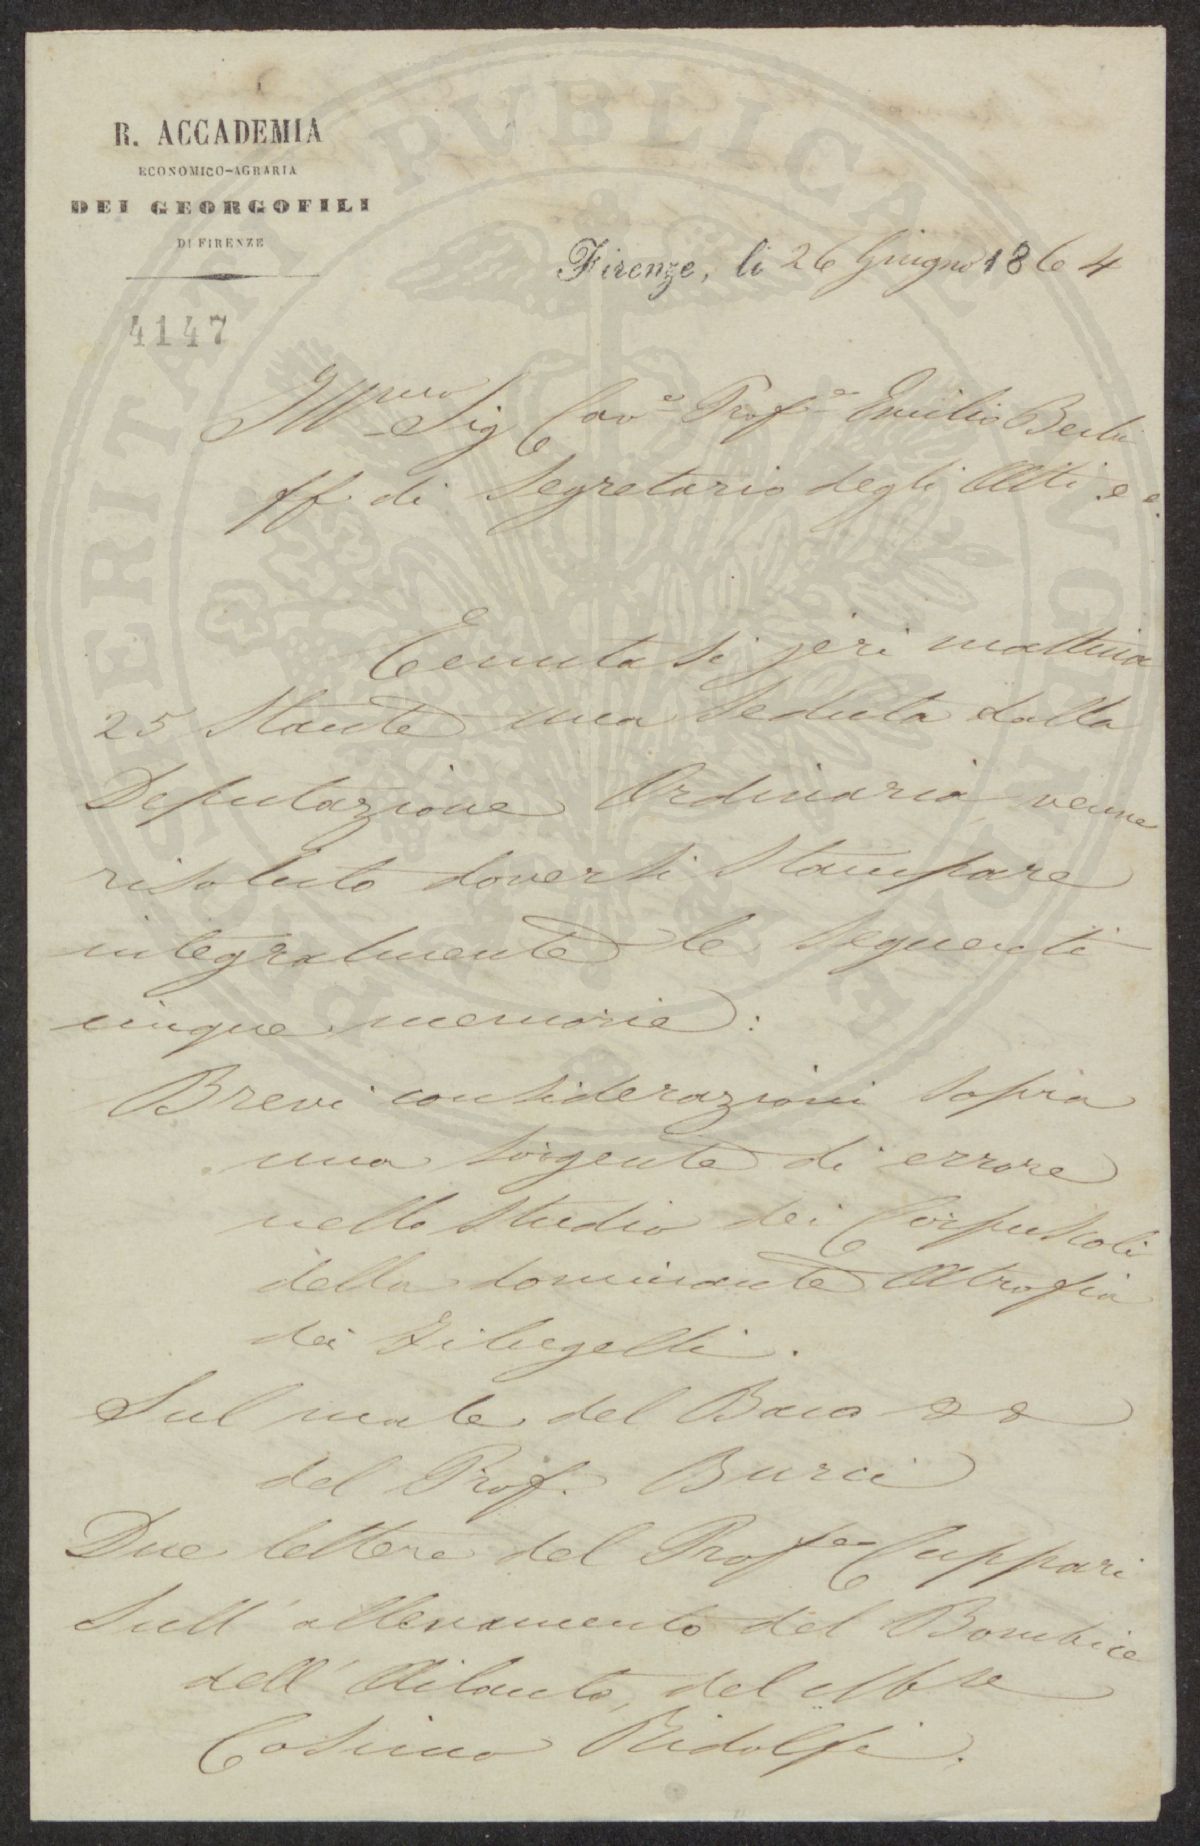 R. ACCADEMIA
ECONOMICO-AGRARIA
DEI GEORGOFILI
DI FIRENZE
Firenze, li 26 Giugno 1864
4147
Illmo Sig Cave Profe Emilio Bechi
ff. di Segretario degli Atti e e.
Tenutasi jeri mattina
25 Stante una Seduta dalla
Deputazione Ordinaria, venne
risoluto doversi Stampare
integralmente le Seguenti
cinque memorie:
Brevi considerazioni Sopra
una Sorgente di errore
nello Studio dei Corpuscoli
della dominante Atrofia
dei Filugelli.
Sul male del Baco
del Prof. Burci
Due lettere del Profe Cuppari
Sull' allevamento del Bombice
dell' Ailanto, del Mse
Cosimo Ridolfi.
PROSPERITATI PVBLICAE AVGENDAE